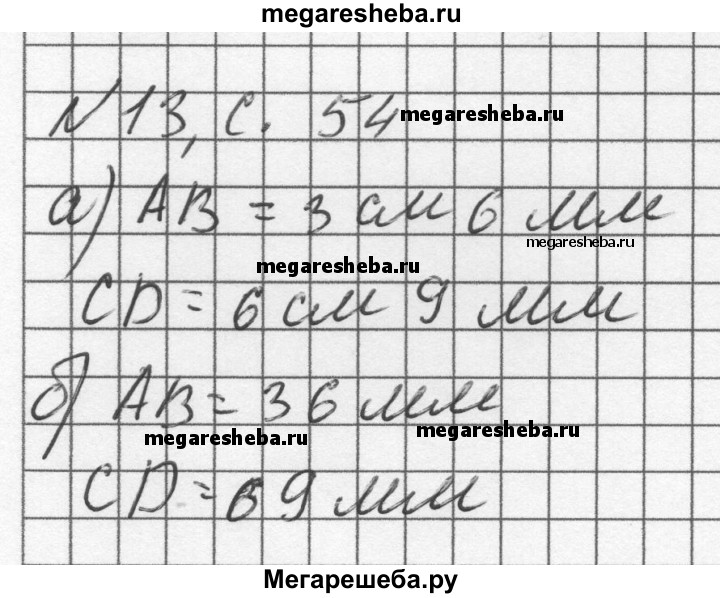 megaresheba.ru
№13, с. 54 megaresheba.ru
а) АВ = 3 см 6 мм
megaresheba.ru
megaresheba.ru
CD = 6 см 9 мм
б) АВ = 36 мм
megaresheba.ru megaresheba.ru
CD = 69 мм
Мегарешеба.ру